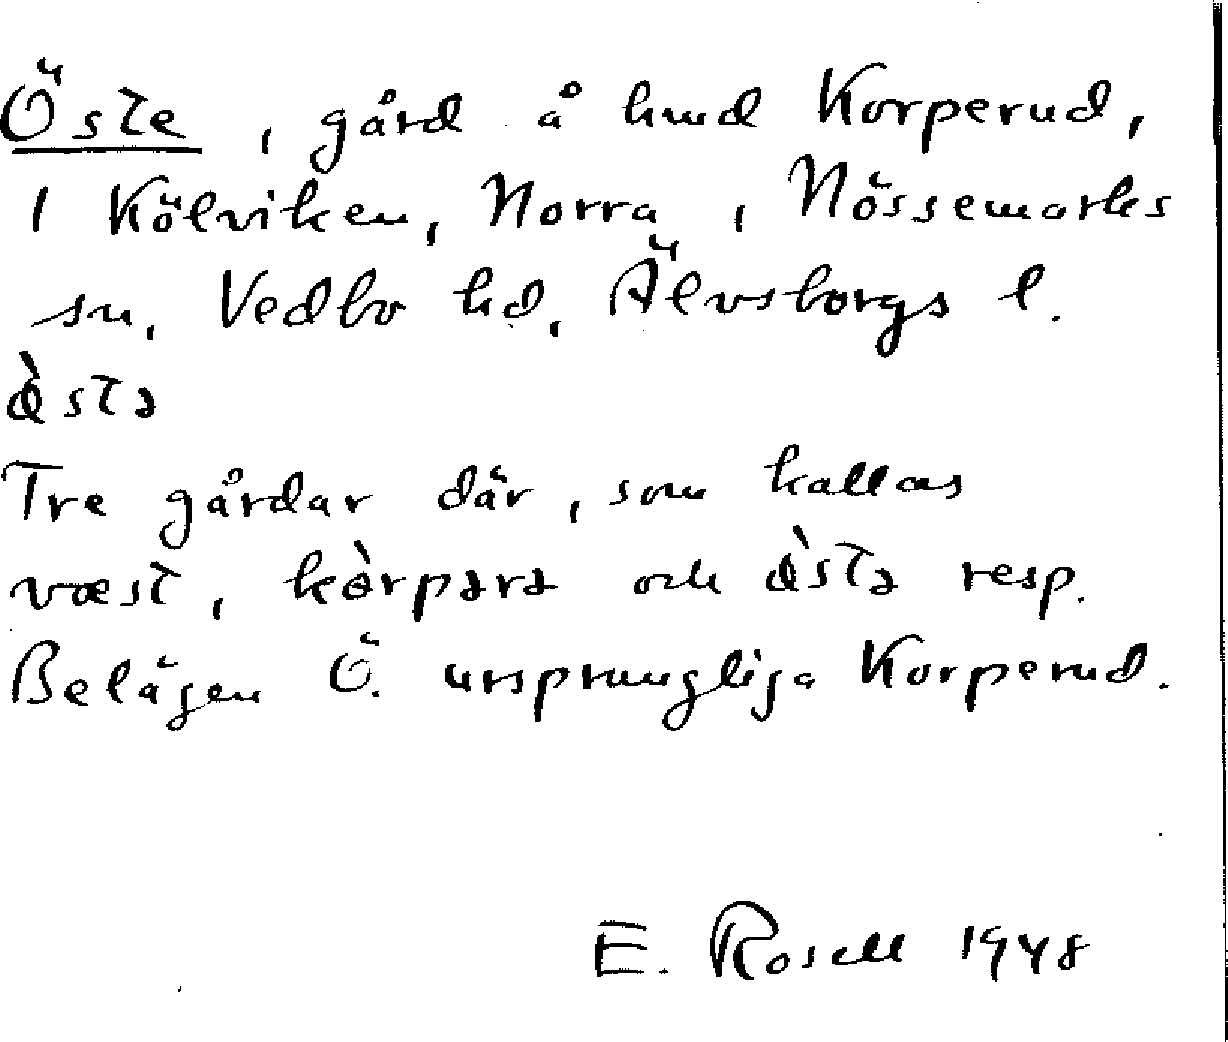 Öste, gård å hmd Korperud,
1 Kölviken, Norra, Nössemarks
sn, Vedbo hd, Älvsborgs l.
ɷ̀stə
Tre gårdar där, som kallas
væst, kòrpərə och ɷ̀stə resp.
Belägen Ö. ursprungliga Korperud.
E. Rosell 1948